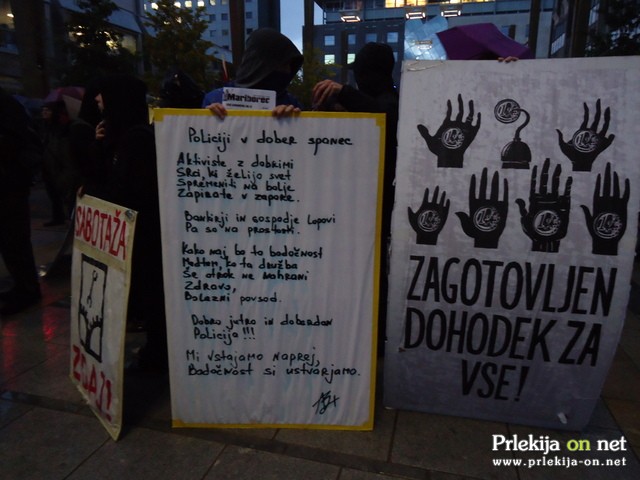 Mariborec
SABOTAŽA
ZDAJ!
Policiji v dober spanec
Aktiviste z dobrimi
Srci, ki želijo svet
Spremeniti na bolje
Zapirate v zapore.
Bankirji in gospodje lopovi
Pa so na prostosti.
Kako naj bo to bodočnost
Medtem, ko ta družba
Še otrok ne nahrani
Zdravo,
Bolezni povsod.
Dobro jutro in doberdan
Policija!!!
Mi vstajamo naprej,
Bodočnost si ustvarjamo.
ZAGOTOVLJEN
DOHODEK ZA
VSE!
Prlekija on net
www.prlekija-on.net